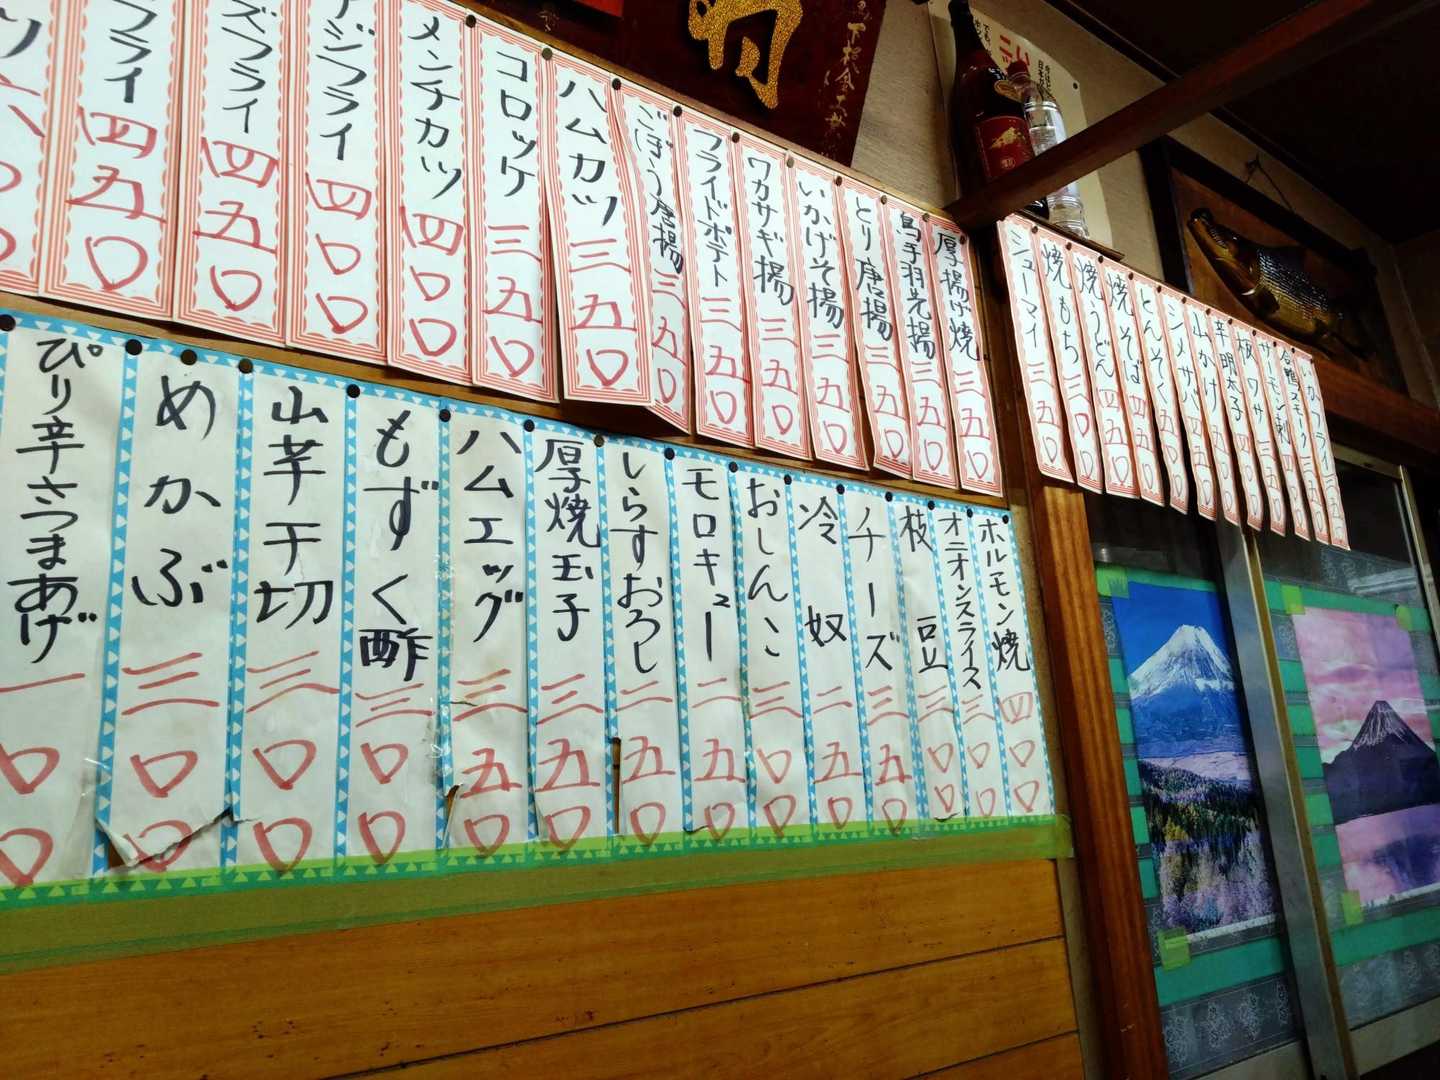 いかフライ 三五〇
合鴨スモーク
サーモン刺 三五〇
板ワサ
辛明太子 三五〇
山かけ 四五〇
シメサバ 四五〇
とんそく 三五〇
焼そば 四五〇
焼うどん 四五〇
焼もち 三〇〇
シューマイ 三五〇
厚揚げ焼 三五〇
鳥手羽先揚 三五〇
とり唐揚 三五〇
いかげそ揚 三五〇
ワカサギ揚 三五〇
フライドポテト 三五〇
ごぼう唐揚 三五〇
ハムカツ 三五〇
コロッケ 三五〇
メンチカツ 四〇〇
アジフライ 四〇〇
ズフライ 四五〇
フライ 四五〇
ホルモン焼 四〇〇
オニオンスライス 三〇〇
枝豆 三〇〇
チーズ 三五〇
冷奴 二五〇
おしんこ 三〇〇
モロキュー 二五〇
しらすおろし 二五〇
厚焼玉子 三五〇
ハムエッグ 三五〇
もずく酢 三〇〇
山芋千切 三〇〇
めかぶ 三〇〇
ぴり辛さつまあげ